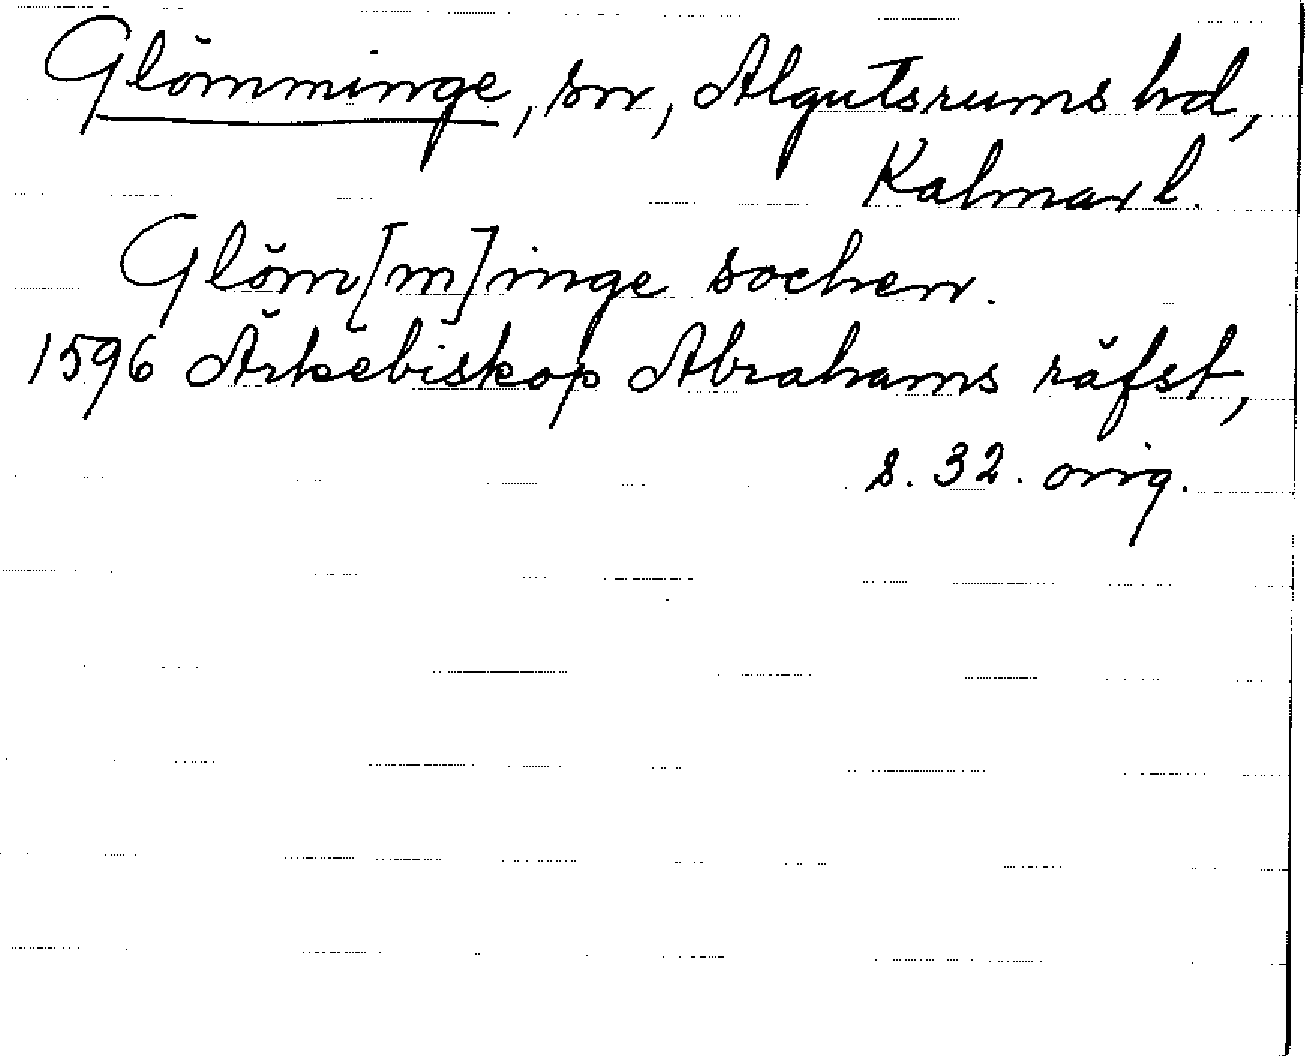 Glömminge, sn, Algutsrums hd,
Kalmar l.
Glöm[m]inge sochen.
1596 Ärkebiskop Abrahams räfst,
s. 32. orig.